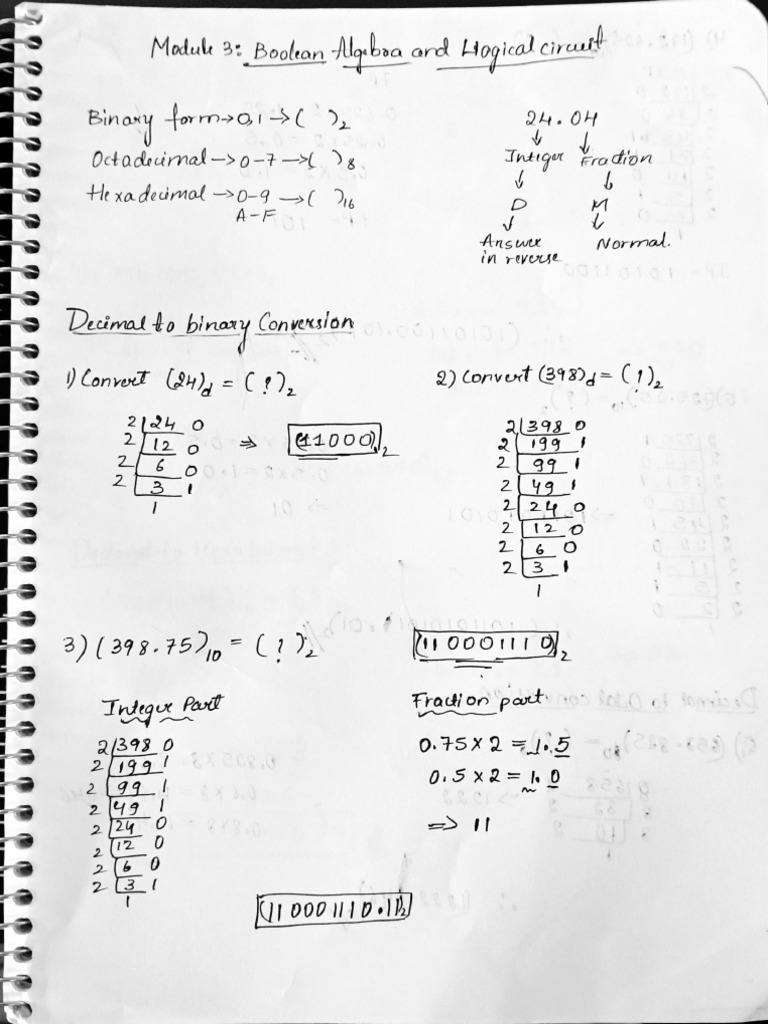 Module 3: Boolean Algebra and Llogical circuit
Binary form → 0,1 → ( )₂
Octadecimal → 0-7 → ( )₈
Hexadecimal → 0-9 → ( )₁₆
A-F
24.04
↓ ↓
Integer Fraction
↓ ↓
D M
↓ ↓
Answer Normal.
in reverse
Decimal to binary Conversion
1) Convert (24)d = ( ? )₂
2 24 0
2 12 0
2 6 0
2 3 1
1
⇒ (11000)₂
2) Convert (398)d = ( ? )₂
2 398 0
2 199 1
2 99 1
2 49 1
2 24 0
2 12 0
2 6 0
2 3 1
1
(110001110)₂
3) (398.75)₁₀ = ( ? )₂
Integer Part
2 398 0
2 199 1
2 99 1
2 49 1
2 24 0
2 12 0
2 6 0
2 3 1
1
Fraction part
0.75 x 2 = 1.5
0.5 x 2 = 1.0
⇒ 11
(110001110.11)₂